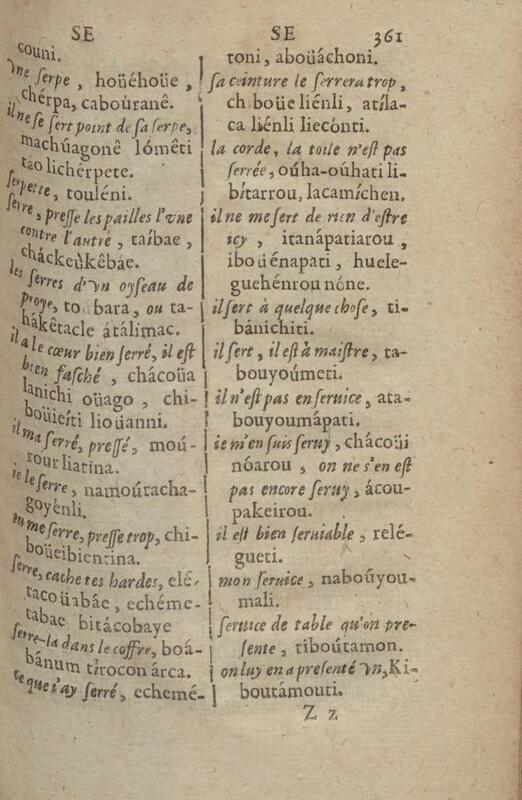 SE
couni.
vne ſerpe, hoüéhoüe,
chérpa, cabouranê.
il ne ſe ſert point de ſa ſerpe,
machúagonê lómêti
táo lichérpete.
ſerpette, touléni.
ſerre, preſſe les pailles l'vne
contre l'autre, taíbae,
cháckeùkêbáe.
les ſerres d'vn oyſeau de
proye, toúbara, ou ta-
hákêtacle átálimac.
il a le cœur bien ſerré, il eſt
bien faſché, chácoüa
lanichi oüago, chi-
boüieíti lioüanni.
il m'a ſerré, preſſé, moú-
rour liatina.
ie le ſerre, namoútacha-
goyénli.
tu me ſerre, preſſe trop, chi-
boüeibientina.
ſerre, cache tes hardes, elé-
tacoüabáe, echéme-
tabae bitácobaye
ſerre-la dans le coffre, boá-
bánum tírocon árca.
ce que i'ay ſerré, echemé-
SE 361
toni, aboüáchoni.
ſa ceinture le ſerrera trop,
chiboüe liénli, atíla-
ca liénli lieconti.
la corde, la toile n'eſt pas
ſerrée, oúha-oúhati li-
bítarrou, lacamíchen.
il ne me ſert de rien d'eſtre
icy, itanápatiarou,
iboüénapati, huele-
guehénrou nóne.
il ſert à quelque choſe, ti-
bánichiti.
il ſert, il eſt à maiſtre, ta-
bouyoúmeti.
il n'eſt pas en ſeruice, ata-
bouyoumápati.
ie m'en ſuis ſeruy, chácoüi
nóarou, on ne s'en eſt
pas encore ſeruy, ácou-
pakeirou.
il eſt bien ſeruiable, relé-
gueti.
mon ſeruice, naboúyou-
mali.
ſeruice de table qu'on pre-
ſente, tiboútamon.
on luy en a preſenté vn, Ki-
boutámouti.
Z z